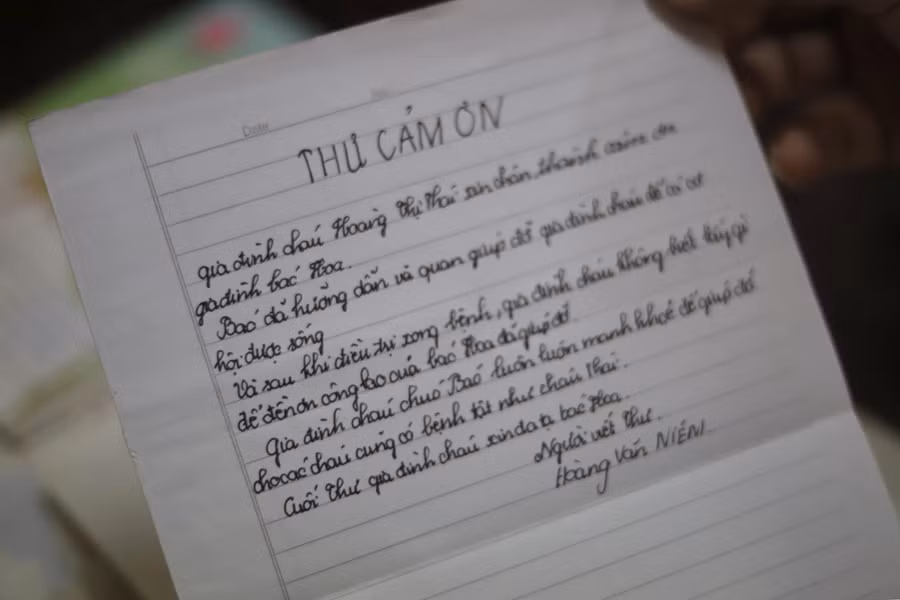 Date
THƯ CẢM ƠN
gia đình cháu Hoàng Thị Thái xin chân thành cảm ơn
gia đình bác Hoa.
Bác đã hướng dẫn và quan giúp đỡ gia đình cháu để có cơ
hội được sống
Và sau khi điều trị xong bệnh, gia đình cháu không biết lấy gì
để đền ơn công lao của bác Hoa đã giúp đỡ.
Gia đình cháu chúc Bác luôn luôn mạnh khoẻ để giúp đỡ
cho các cháu cũng có bệnh tật như cháu Thái.
Cuối thư gia đình cháu xin đa tạ bác Hoa.
Người viết thư.
Hoàng Văn NIÊN